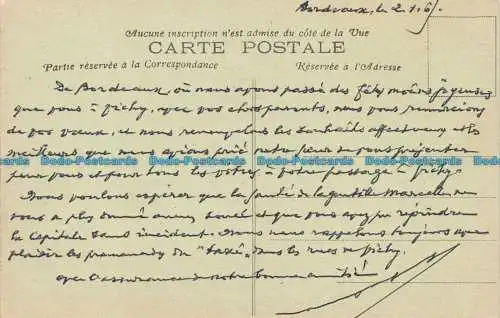 Bordeaux, le 2.1.6
Aucune inscription n'est admise du côté de la Vue
CARTE POSTALE
Partie réservée à la Correspondance
Réservée à l'Adresse
De Bordeaux, où nous avons passé des fêtes moins joyeuses
que vous à Vichy, avec vos chers parents, nous vous remercions
de vos vœux, et nous renouvelons les souhaits affectueux et les
meilleurs que nous ayions prié votre sœur de vous
pour vous et pour tous les vôtres à votre passage à Vichy.
Nous voulons espérer que la santé de la gentille Marcelle ne
vous a plus donné aucun souci et que vous avez pu
la Capitale sans incident. Nous nous rappelons toujours avec
plaisir les promenades du "taxi" dans les rues de Vichy.
avec l'assurance de notre bonne amitié!
Dodo-Postcards Dodo-Postcards Dodo-Postcards Dodo-Postcards Dodo-Postcards